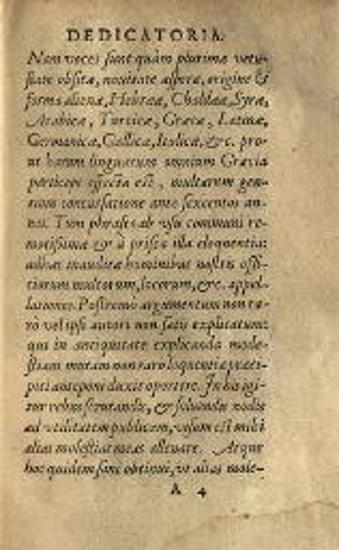 DEDICATORIA.
Nam voces sunt quàm plurimæ vetu-
state obsitæ, nouitate asperæ, origine &
forma alienæ, Hebrææ, Chaldææ, Syræ,
Arabicæ, Turcicæ, Græcæ, Latinæ,
Germanicæ, Gallicæ, Italicæ, &c. pro-
ut harum linguarum omnium Græcia
particeps effecta est, multarum gen-
tium concursatione ante sexcentos an-
nos. Tum phrases ab vsu communi re-
motissimæ & à prisca illa eloquentia:
adhæc inauditæ hominibus nostris offi-
tiorum multorum, locorum, &c. appel-
lationes. Postremò argumentum non ra-
rò vel ipsi autori non satis explicatum:
qui in antiquitate explicanda mode-
stiam mutam non raro loquentiæ præci-
piti anteponi duxit oportere. In his igi-
tur rebus scrutandis, & soluendis nodis
ad vtilitatem publicam, visum est mihi
alias molestias meas alleuare. Atque
hoc quidem sanè obtinui, vt alias mole-
A 4